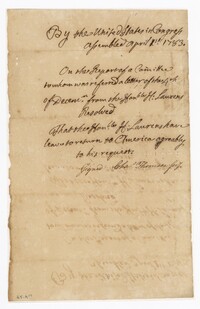 By the United States in Congress
assembled April 1st. 1783.
On the Report of a Com.ittee
to whom was referred a letter of the
of Decemr. from the Honble. H. Laurens
Resolved
That the Honble. H. Laurens have
leave to return to America agreably
to his request.
Signed Chas. Thomson secy.